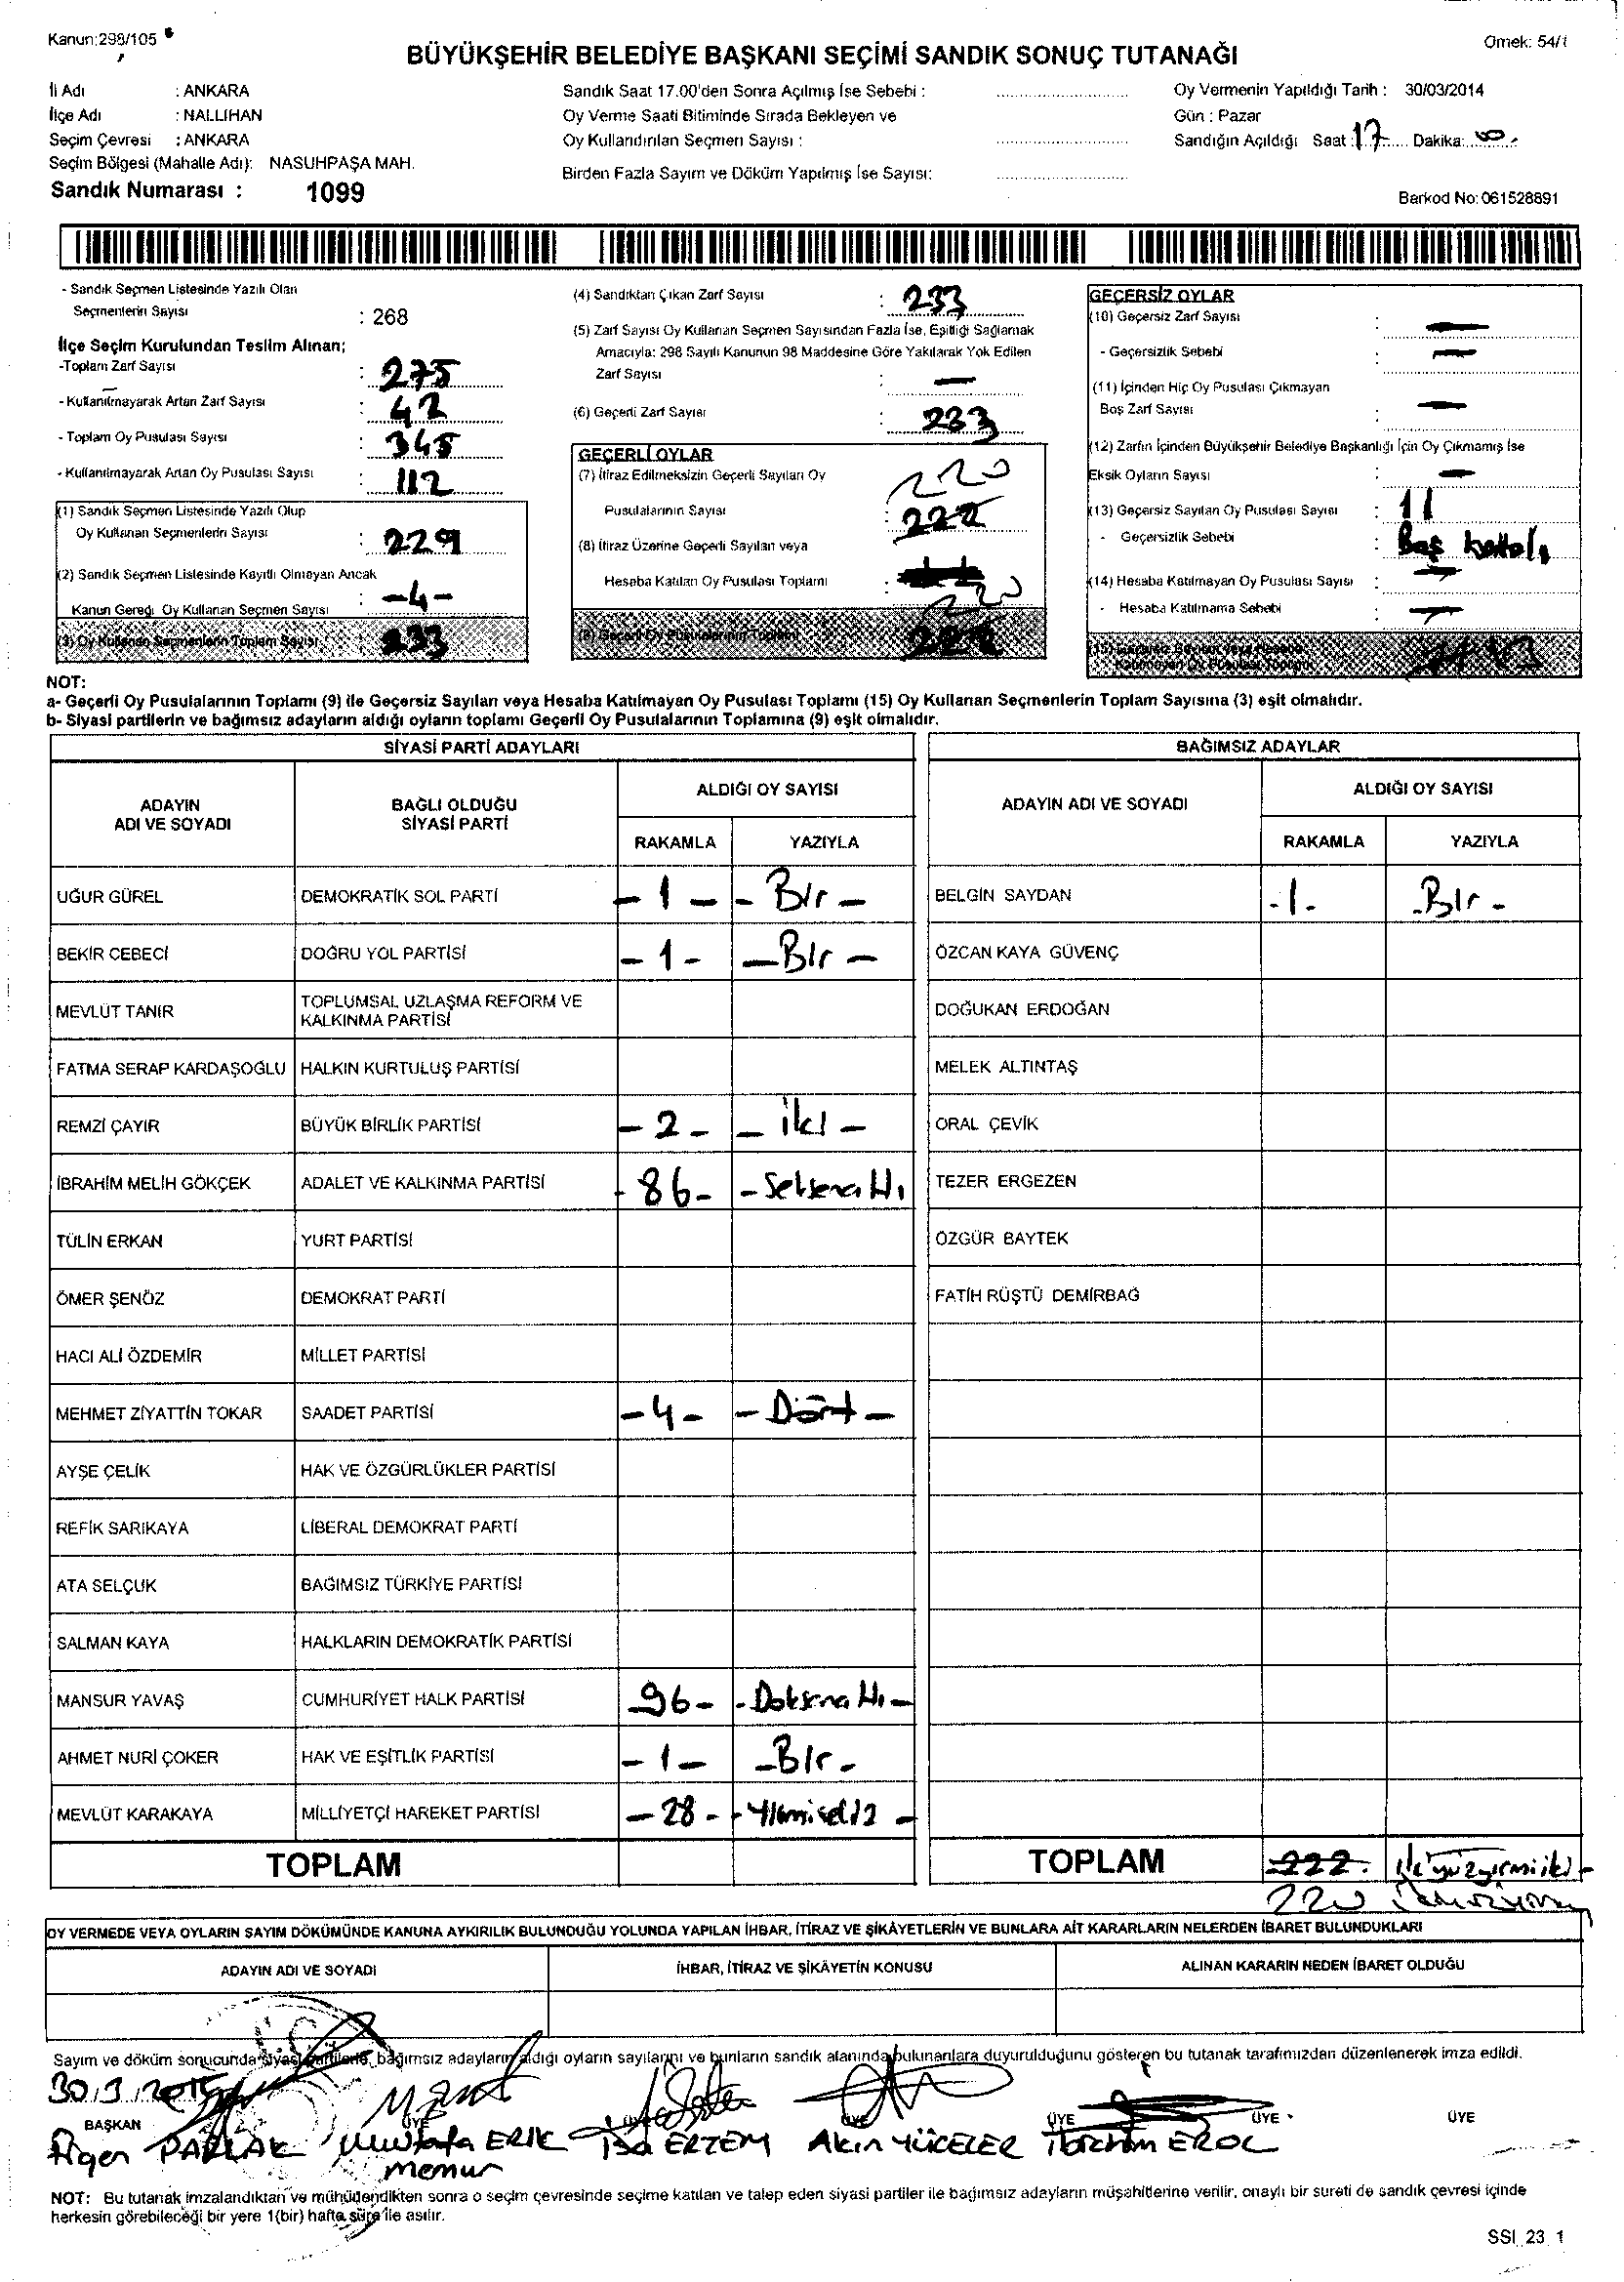 Kanun:298/105
Örnek: 54/1
BÜYÜKŞEHİR BELEDİYE BAŞKANI SEÇİMİ SANDIK SONUÇ TUTANAĞI
İli Adı : ANKARA
İlçe Adı : NALLIHAN
Seçim Çevresi : ANKARA
Seçim Bölgesi (Mahalle Adı): NASUHPAŞA MAH.
Sandık Numarası : 1099
Sandık Saat 17.00'den Sonra Açılmış İse Sebebi :
Oy Verme Saati Bitiminde Sırada Bekleyen ve
Oy Kullandırılan Seçmen Sayısı :
Birden Fazla Sayım ve Döküm Yapılmış İse Sayısı:
Oy Vermenin Yapıldığı Tarih : 30/03/2014
Gün : Pazar
Sandığın Açıldığı Saat : 17 Dakika:
Barkod No: 061528891
- Sandık Seçmen Listesinde Yazılı Olan
Seçmenlerin Sayısı : 268
İlçe Seçim Kurulundan Teslim Alınan;
-Toplam Zarf Sayısı : 275
- Kullanılmayarak Artan Zarf Sayısı : 42
- Toplam Oy Pusulası Sayısı : 345
- Kullanılmayarak Artan Oy Pusulası Sayısı : 112
(1) Sandık Seçmen Listesinde Yazılı Olup
Oy Kullanan Seçmenlerin Sayısı : 229
(2) Sandık Seçmen Listesinde Kayıtlı Olmayan Ancak
Kanun Gereği Oy Kullanan Seçmen Sayısı : -4-
(3) Oy Kullanan Seçmenlerin Toplam Sayısı : 233
(4) Sandıktan Çıkan Zarf Sayısı : 233
(5) Zarf Sayısı Oy Kullanan Seçmen Sayısından Fazla İse, Eşitliği Sağlamak
Amacıyla: 298 Sayılı Kanunun 98 Maddesine Göre Yakılarak Yok Edilen
Zarf Sayısı : —
(6) Geçerli Zarf Sayısı : 233
GEÇERLİ OYLAR
(7) İtiraz Edilmeksizin Geçerli Sayılan Oy 220
Pusulalarının Sayısı : 222
(8) İtiraz Üzerine Geçerli Sayılan veya
Hesaba Katılan Oy Pusulası Toplamı :
220
(9) Geçerli Oy Pusulalarının Toplamı 222
GEÇERSİZ OYLAR
(10) Geçersiz Zarf Sayısı : —
- Geçersizlik Sebebi : —
(11) İçinden Hiç Oy Pusulası Çıkmayan
Boş Zarf Sayısı : —
(12) Zarfın İçinden Büyükşehir Belediye Başkanlığı İçin Oy Çıkmamış İse
Eksik Oyların Sayısı : —
(13) Geçersiz Sayılan Oy Pusulası Sayısı : 11
- Geçersizlik Sebebi :
(14) Hesaba Katılmayan Oy Pusulası Sayısı : —
- Hesaba Katılmama Sebebi : —
(15) Geçersiz Sayılan veya Hesaba
Katılmayan Oy Pusulası Toplamı 13
NOT:
a- Geçerli Oy Pusulalarının Toplamı (9) ile Geçersiz Sayılan veya Hesaba Katılmayan Oy Pusulası Toplamı (15) Oy Kullanan Seçmenlerin Toplam Sayısına (3) eşit olmalıdır.
b- Siyasi partilerin ve bağımsız adayların aldığı oyların toplamı Geçerli Oy Pusulalarının Toplamına (9) eşit olmalıdır.
SİYASİ PARTİ ADAYLARI
ADAYIN ADI VE SOYADI BAĞLI OLDUĞU SİYASİ PARTİ ALDIĞI OY SAYISI
RAKAMLA YAZIYLA
UĞUR GÜREL DEMOKRATİK SOL PARTİ - 1 - - Bir -
BEKİR CEBECİ DOĞRU YOL PARTİSİ - 1 - - Bir -
MEVLÜT TANIR TOPLUMSAL UZLAŞMA REFORM VE KALKINMA PARTİSİ
FATMA SERAP KARDAŞOĞLU HALKIN KURTULUŞ PARTİSİ
REMZİ ÇAYIR BÜYÜK BİRLİK PARTİSİ - 2 - - İki -
İBRAHİM MELİH GÖKÇEK ADALET VE KALKINMA PARTİSİ - 86 - - Seksenaltı
TÜLİN ERKAN YURT PARTİSİ
ÖMER ŞENÖZ DEMOKRAT PARTİ
HACI ALİ ÖZDEMİR MİLLET PARTİSİ
MEHMET ZİYATTİN TOKAR SAADET PARTİSİ - 4 - - Dört -
AYŞE ÇELİK HAK VE ÖZGÜRLÜKLER PARTİSİ
REFİK SARIKAYA LİBERAL DEMOKRAT PARTİ
ATA SELÇUK BAĞIMSIZ TÜRKİYE PARTİSİ
SALMAN KAYA HALKLARIN DEMOKRATİK PARTİSİ
MANSUR YAVAŞ CUMHURİYET HALK PARTİSİ - 96 - - Doksanaltı -
AHMET NURİ ÇOKER HAK VE EŞİTLİK PARTİSİ - 1 - - Bir -
MEVLÜT KARAKAYA MİLLİYETÇİ HAREKET PARTİSİ - 28 - - Yirmisekiz -
TOPLAM
BAĞIMSIZ ADAYLAR
ADAYIN ADI VE SOYADI ALDIĞI OY SAYISI
RAKAMLA YAZIYLA
BELGİN SAYDAN - 1 - - Bir -
ÖZCAN KAYA GÜVENÇ
DOĞUKAN ERDOĞAN
MELEK ALTINTAŞ
ORAL ÇEVİK
TEZER ERGEZEN
ÖZGÜR BAYTEK
FATİH RÜŞTÜ DEMİRBAĞ
TOPLAM 222 ikiyüzyirmiiki
220 ikiyüzyirmi
OY VERMEDE VEYA OYLARIN SAYIM DÖKÜMÜNDE KANUNA AYKIRILIK BULUNDUĞU YOLUNDA YAPILAN İHBAR, İTİRAZ VE ŞİKÂYETLERİN VE BUNLARA AİT KARARLARIN NELERDEN İBARET BULUNDUKLARI
ADAYIN ADI VE SOYADI İHBAR, İTİRAZ VE ŞİKÂYETİN KONUSU ALINAN KARARIN NEDEN İBARET OLDUĞU
Sayım ve döküm sonucunda siyasi partilerle, bağımsız adayların aldığı oyların sayılarını ve bunların sandık alanında bulunanlara duyurulduğunu gösteren bu tutanak tarafımızdan düzenlenerek imza edildi.
BAŞKAN ÜYE ÜYE ÜYE ÜYE ÜYE ÜYE
PARLAK Mustafa ERİK İsa ERTEM Akın YÜCELER İbrahim EROL
memur
NOT: Bu tutanak imzalandıktan ve mühürlendikten sonra o seçim çevresinde seçime katılan ve talep eden siyasi partiler ile bağımsız adayların müşahitlerine verilir, onaylı bir sureti de sandık çevresi içinde
herkesin görebileceği bir yere 1(bir) hafta süre ile asılır.
SSI_23_1